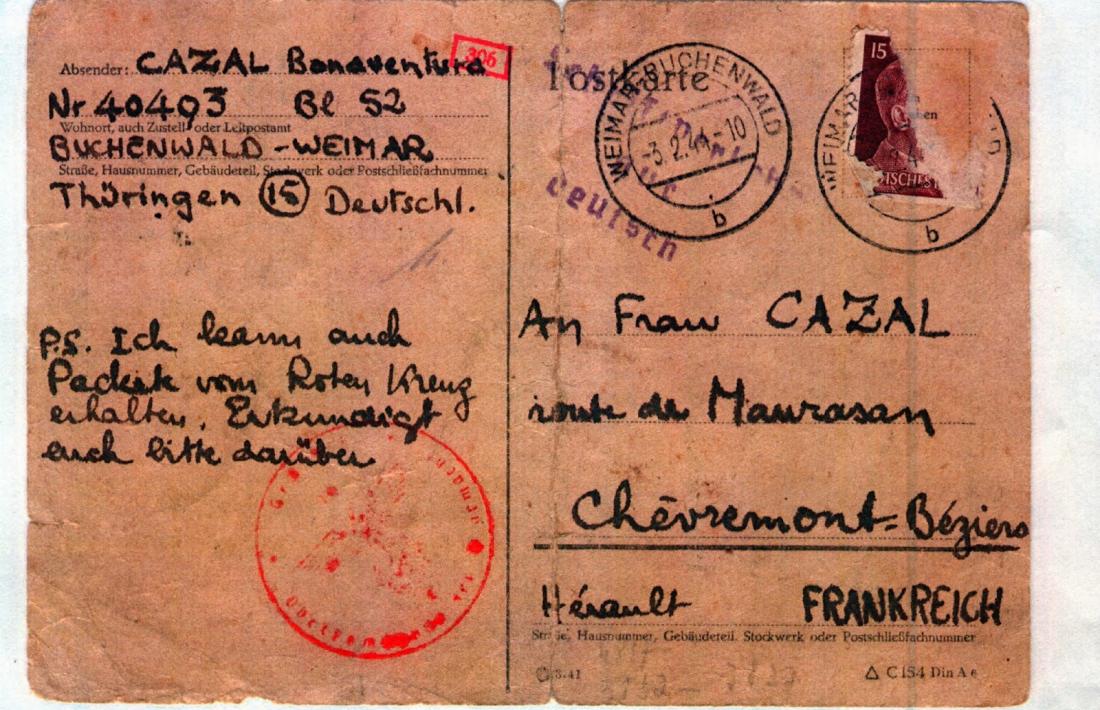 306
Absender: CAZAL Bonaventura
Nr 40493 Bl 52
Wohnort, auch Zustell- oder Leitpostamt
BUCHENWALD-WEIMAR
Straße, Hausnummer, Gebäudeteil, Stockwerk oder Postschließfachnummer
Thüringen (15) Deutschl.
P.S. Ich kann auch
Packete vom Roten Kreuz
erhalten. Erkundigt
euch bitte darüber
Postkarte
WEIMAR-BUCHENWALD
-3.2.44-10
b
deutsch
15
WEIMAR
b
An Frau CAZAL
route de Maurasan
Chèvremont=Béziers
Hérault FRANKREICH
Straße, Hausnummer, Gebäudeteil, Stockwerk oder Postschließfachnummer
3.41
C154 Din A 6